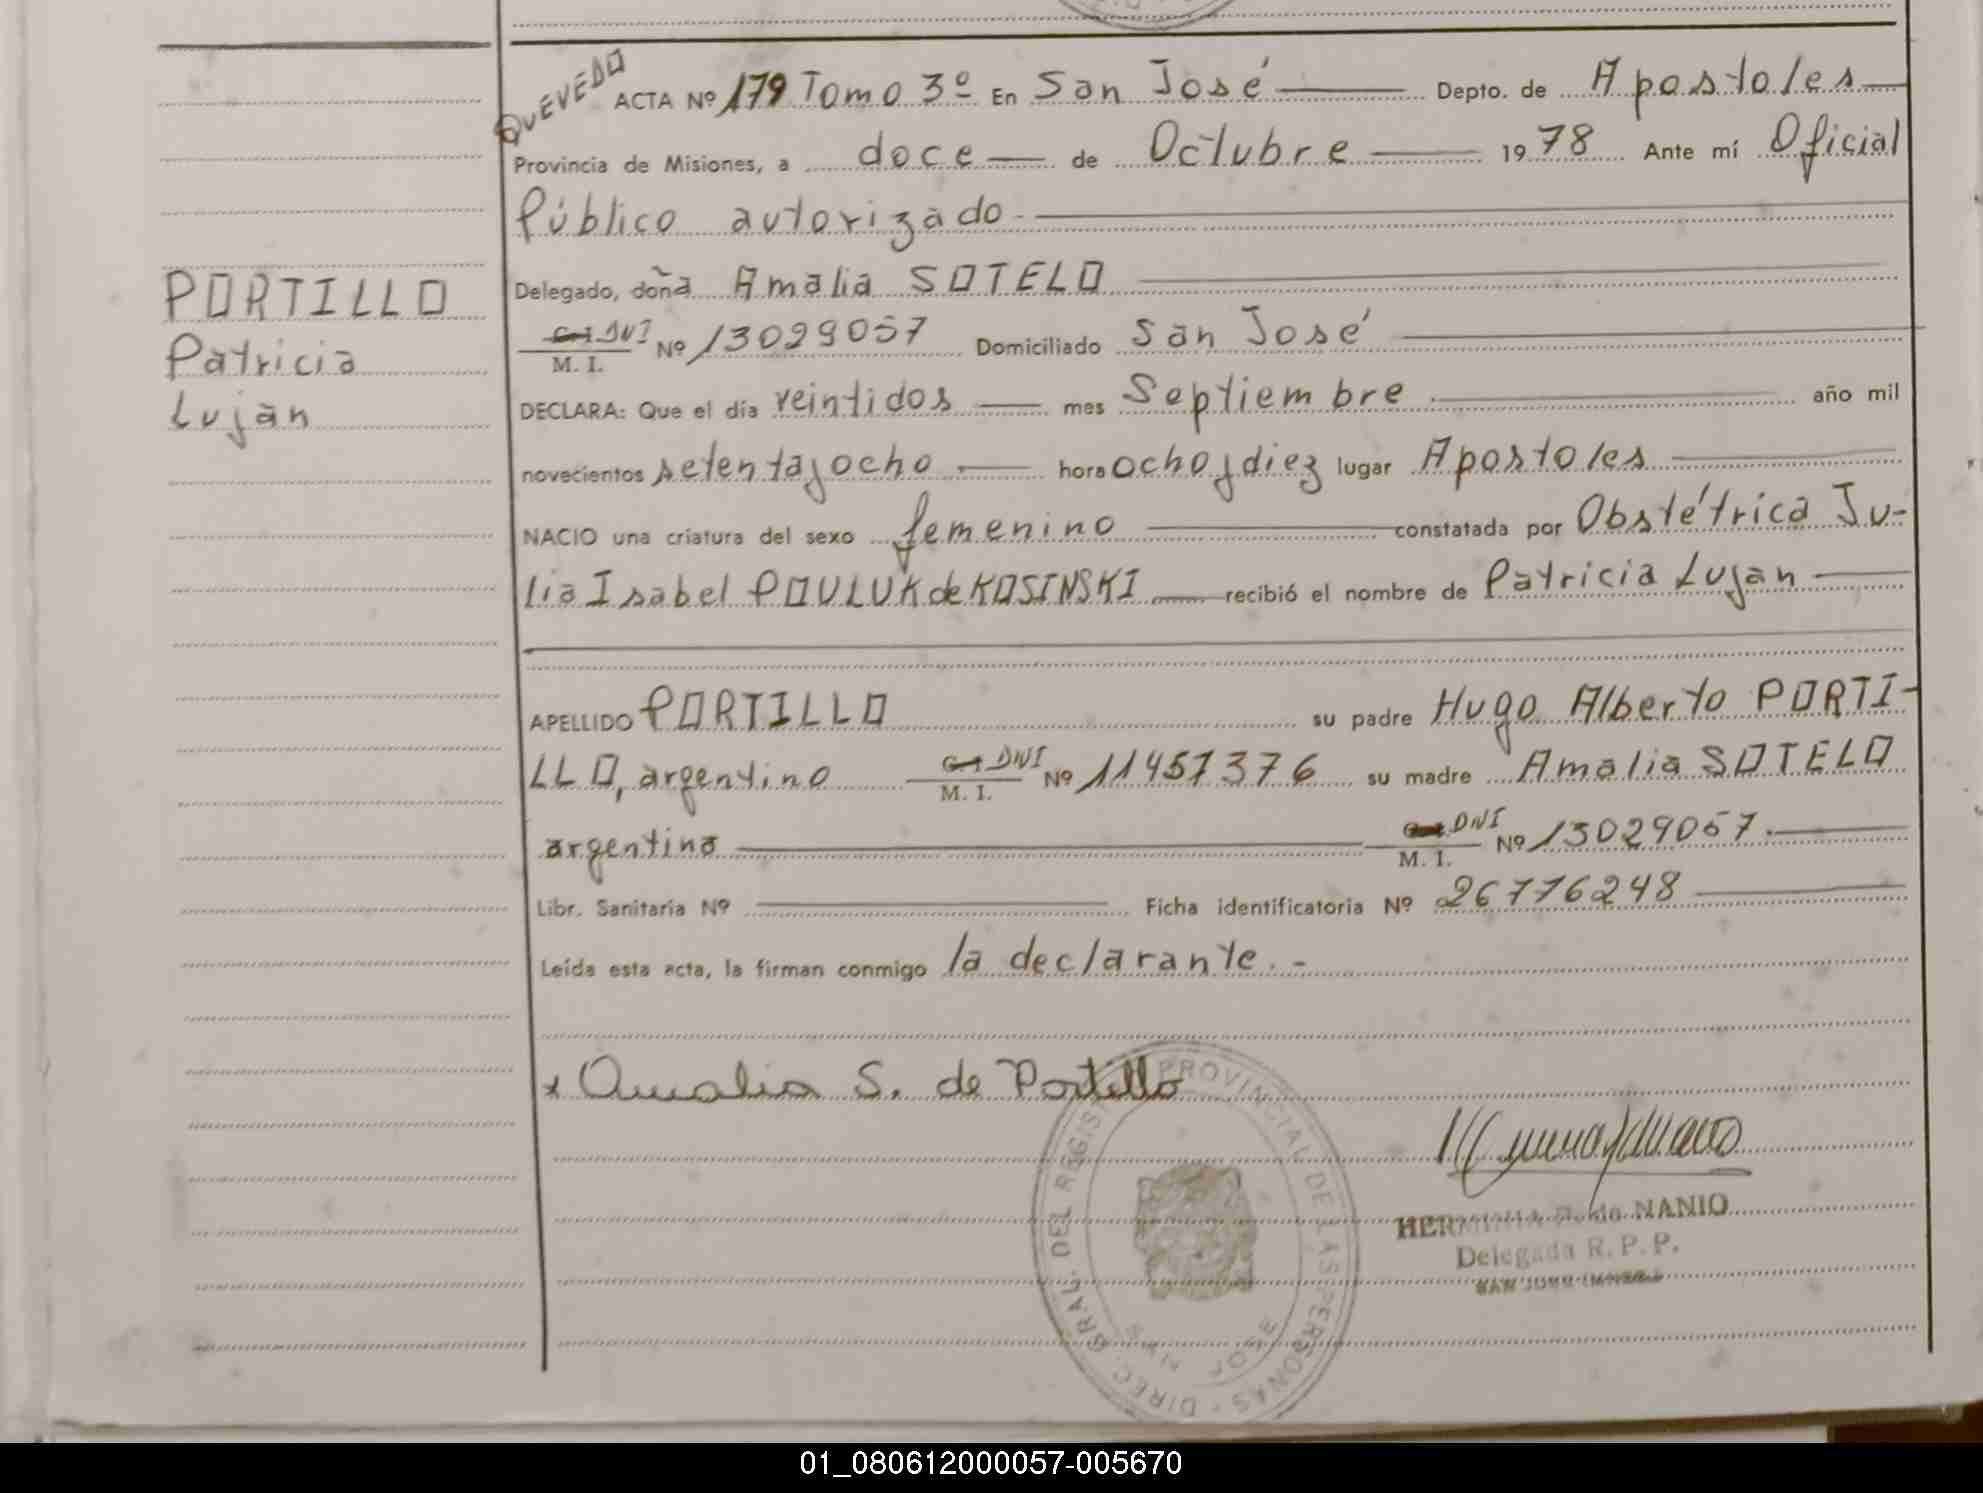 QUEVEDO
ACTA Nº 179 Tomo 3º En San José Depto. de Apostoles
Provincia de Misiones, a doce de Octubre 1978 Ante mí Oficial
Público autorizado
PORTILLO
Patricia
Luján
Delegado, doña Amalia SOTELO
C.I. DNI
M. I. Nº 13029057 Domiciliado San José
DECLARA: Que el día veintidos mes Septiembre año mil
novecientos setenta y ocho hora ocho y diez lugar Apostoles
NACIO una criatura del sexo femenino constatada por Obstétrica Ju-
lia Isabel POULUK de KOSINSKI recibió el nombre de Patricia Luján
APELLIDO PORTILLO su padre Hugo Alberto PORTI-
LLO, argentino C.I. DNI M. I. Nº 11457376 su madre Amalia SOTELO
argentina DNI M. I. Nº 13029057.
Libr. Sanitaria Nº Ficha identificatoria Nº 26776248
Leída esta acta, la firman conmigo la declarante. -
x Amalia S. de Portillo
DIREC. GRAL. DEL REGISTRO PROVINCIAL DE LAS PERSONAS
SAN JOSE
HERMINIA de NANIO
Delegada R. P. P.
SAN JOSE
01_080612000057-005670